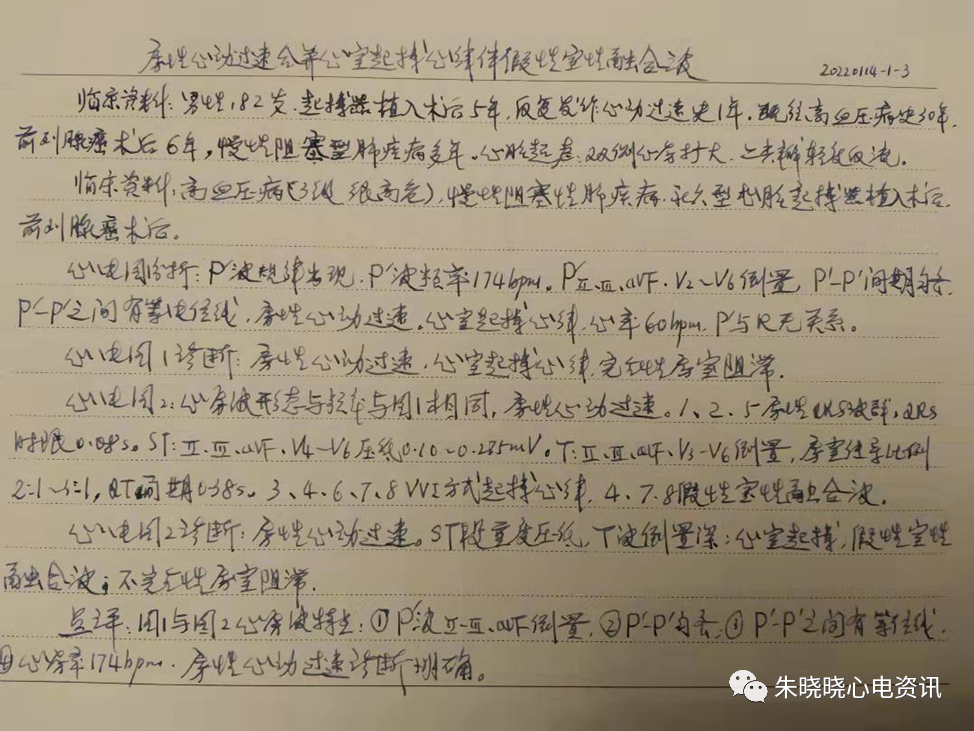 房性心动过速合并心室起搏心律伴假性室性融合波 20220114-1-3
临床资料:男性,82岁.起搏器植入术后5年,反复发作心动过速史1年.既往高血压病史30年.
前列腺癌术后6年,慢性阻塞型肺疾病多年。心脏超声:双侧心房扩大,二尖瓣轻度反流。
临床资料:高血压病(3级 很高危),慢性阻塞性肺疾病.永久型心脏起搏器植入术后.
前列腺癌术后。
心电图分析:P′波规律出现.P′波频率174bpm。P′Ⅱ、Ⅲ、aVF、V2~V6倒置,P′-P′间期匀齐.
P′-P′之间有等电位线,房性心动过速。心室起搏心律,心率60bpm,P′与R无关系。
心电图1诊断:房性心动过速,心室起搏心律,完全性房室阻滞.
心电图2:心房波形态与频率与图1相同,房性心动过速。1、2、5房性QRS波群,QRS
时限0.08s。ST:Ⅱ、Ⅲ、aVF、V4~V6压低0.10~0.275mV。T:Ⅱ、Ⅲ、aVF、V3~V6倒置,房室传导比例
2:1~5:1,QT间期0.38s。3、4、6、7、8 VVI方式起搏心律,4、7、8假性室性融合波。
心电图2诊断:房性心动过速。ST段重度压低,T波倒置深;心室起搏,假性室性
融合波;不完全性房室阻滞.
点评:图1与图2心房波特点:①P′波Ⅱ、Ⅲ、aVF倒置,②P′-P′匀齐,③P′-P′之间有等位线,
④心房率174bpm.房性心动过速诊断明确。
朱晓晓心电资讯